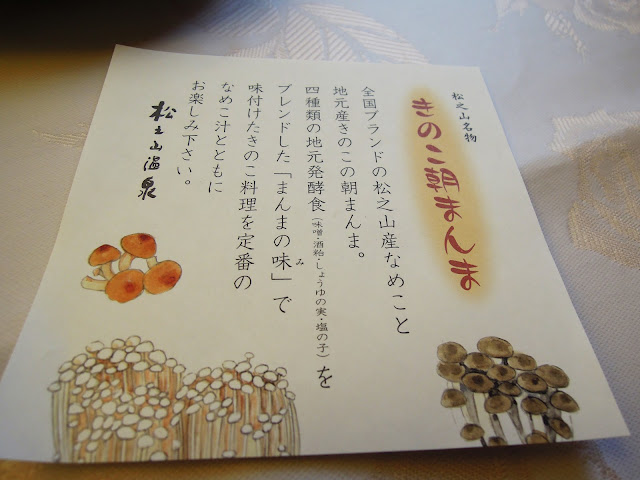 松之山名物
きのこ朝まんま
全国ブランドの松之山産なめこと
地元産きのこの朝まんま。
四種類の地元発酵食（味噌・酒粕・しょうゆの実・塩の子）を
ブレンドした「まんまの味」で
み
味付けたきのこ料理を定番の
なめこ汁とともに
お楽しみ下さい。
松之山温泉